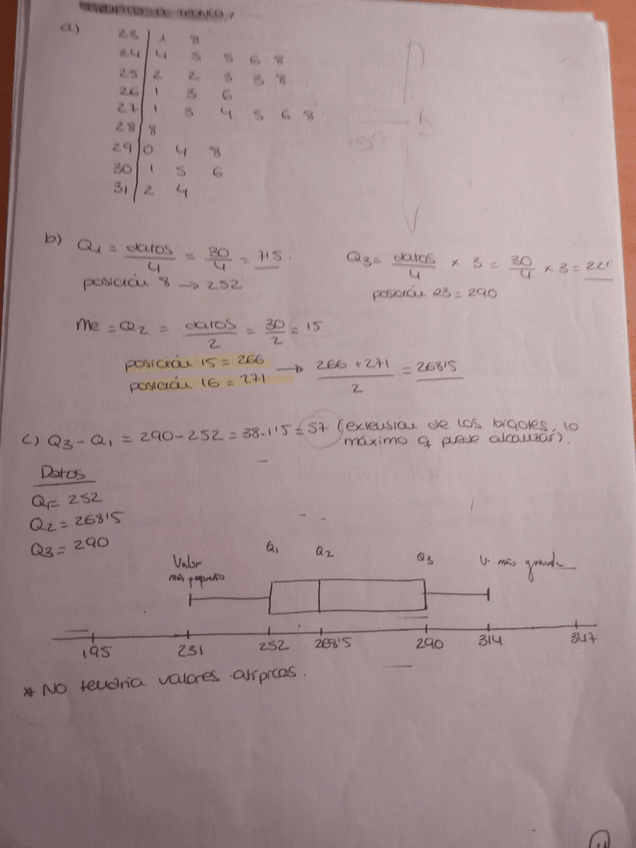 a)
23 | 1 8
24 | 4 5 5 6 8
25 | 2 2 3 3 8
26 | 1 3 6
27 | 1 3 4 5 6 8
28 | 8
29 | 0 4 8
30 | 1 5 6
31 | 2 4
b) Q1 = datos/4 = 30/4 = 7'5. Q3 = datos/4 x 3 = 30/4 x 3 = 22'
posición 8 → 252 posición 23 = 290
Me = Q2 = datos/2 = 30/2 = 15
posición 15 = 266 → (266 + 271)/2 = 268'5
posición 16 = 271
c) Q3 - Q1 = 290 - 252 = 38·1'5 = 57 (extensión de los bigotes, lo
máximo q puede alcanzar).
Datos
Q1 = 252
Q2 = 268'5
Q3 = 290
Valor Q1 Q2 Q3 V. más grande
más pequeño
195 231 252 268'5 290 314 347
* No tendría valores atípicos.